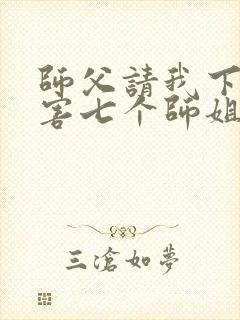 師父請我下
害七个師姐
三滄如夢